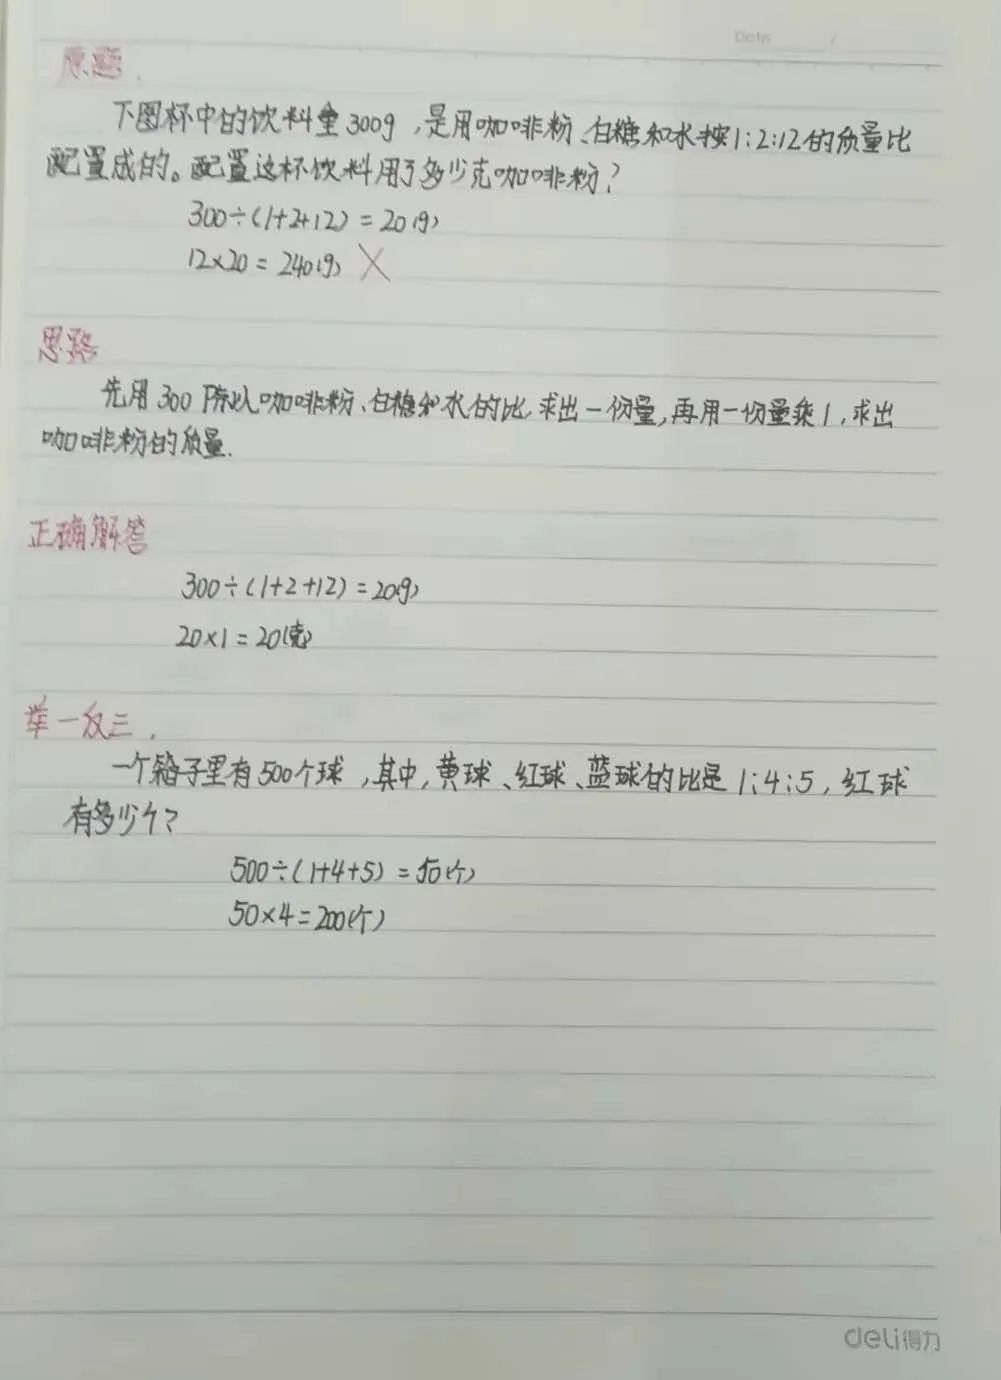 Date /
原题.
下图杯中的饮料重300g,是用咖啡粉、白糖和水按1:2:12的质量比
配置成的。配置这杯饮料用了多少克咖啡粉?
300÷(1+2+12)=20(g)
12×20=240(g) ×
思路
先用300除以咖啡粉、白糖和水的比,求出一份量,再用一份量乘1,求出
咖啡粉的质量.
正确解答
300÷(1+2+12)=20(g)
20×1=20(克)
举一反三.
一个箱子里有500个球,其中,黄球、红球、蓝球的比是1:4:5,红球
有多少个?
500÷(1+4+5)=50(个)
50×4=200(个)
deli得力